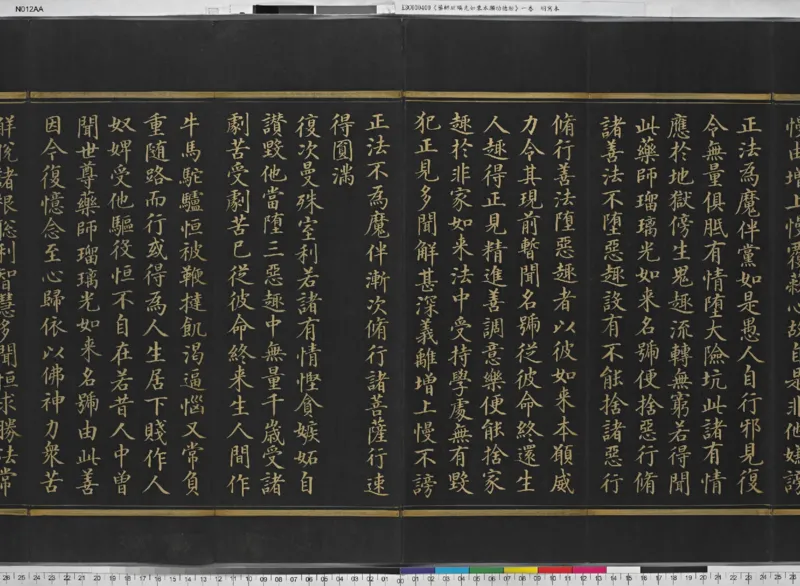 N012AA
《藥師琉璃光如來本願功德經》一卷 明寫本
慢由增上慢覆蔽心故自是非他嫌謗
正法為魔伴黨如是愚人自行邪見復
令無量俱胝有情墮大險坑此諸有情
應於地獄傍生鬼趣流轉無窮若得聞
此藥師瑠璃光如来名號便捨惡行脩
諸善法不墮惡趣設有不能捨諸惡行
脩行善法墮惡趣者以彼如来本願威
力令其現前暫聞名號從彼命終還生
人趣得正見精進善調意樂便能捨家
趣於非家如来法中受持學處無有毀
犯正見多聞解甚深義離增上慢不謗
正法不為魔伴漸次脩行諸菩薩行速
得圓滿
復次曼殊室利若諸有情慳貪嫉妬自
讃毀他當墮三惡趣中無量千歲受諸
劇苦受劇苦已從彼命終来生人間作
牛馬駝驢恒被鞭撻飢渴逼惱又常負
重隨路而行或得為人生居下賤作人
奴婢受他驅役恒不自在若昔人中曾
聞世尊藥師瑠璃光如来名號由此善
因今復憶念至心歸依以佛神力衆苦
解脫諸根聦利智慧多聞恒求勝法常